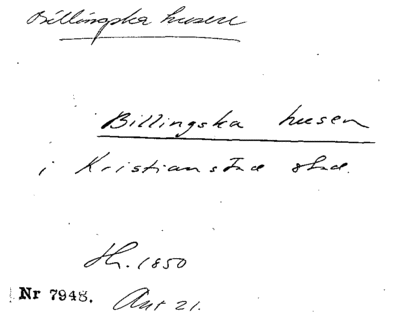 Billingska husen
Billingska husen
i Kristianstad stad.
Sk. 1850
Nr 7948. Ant 21.